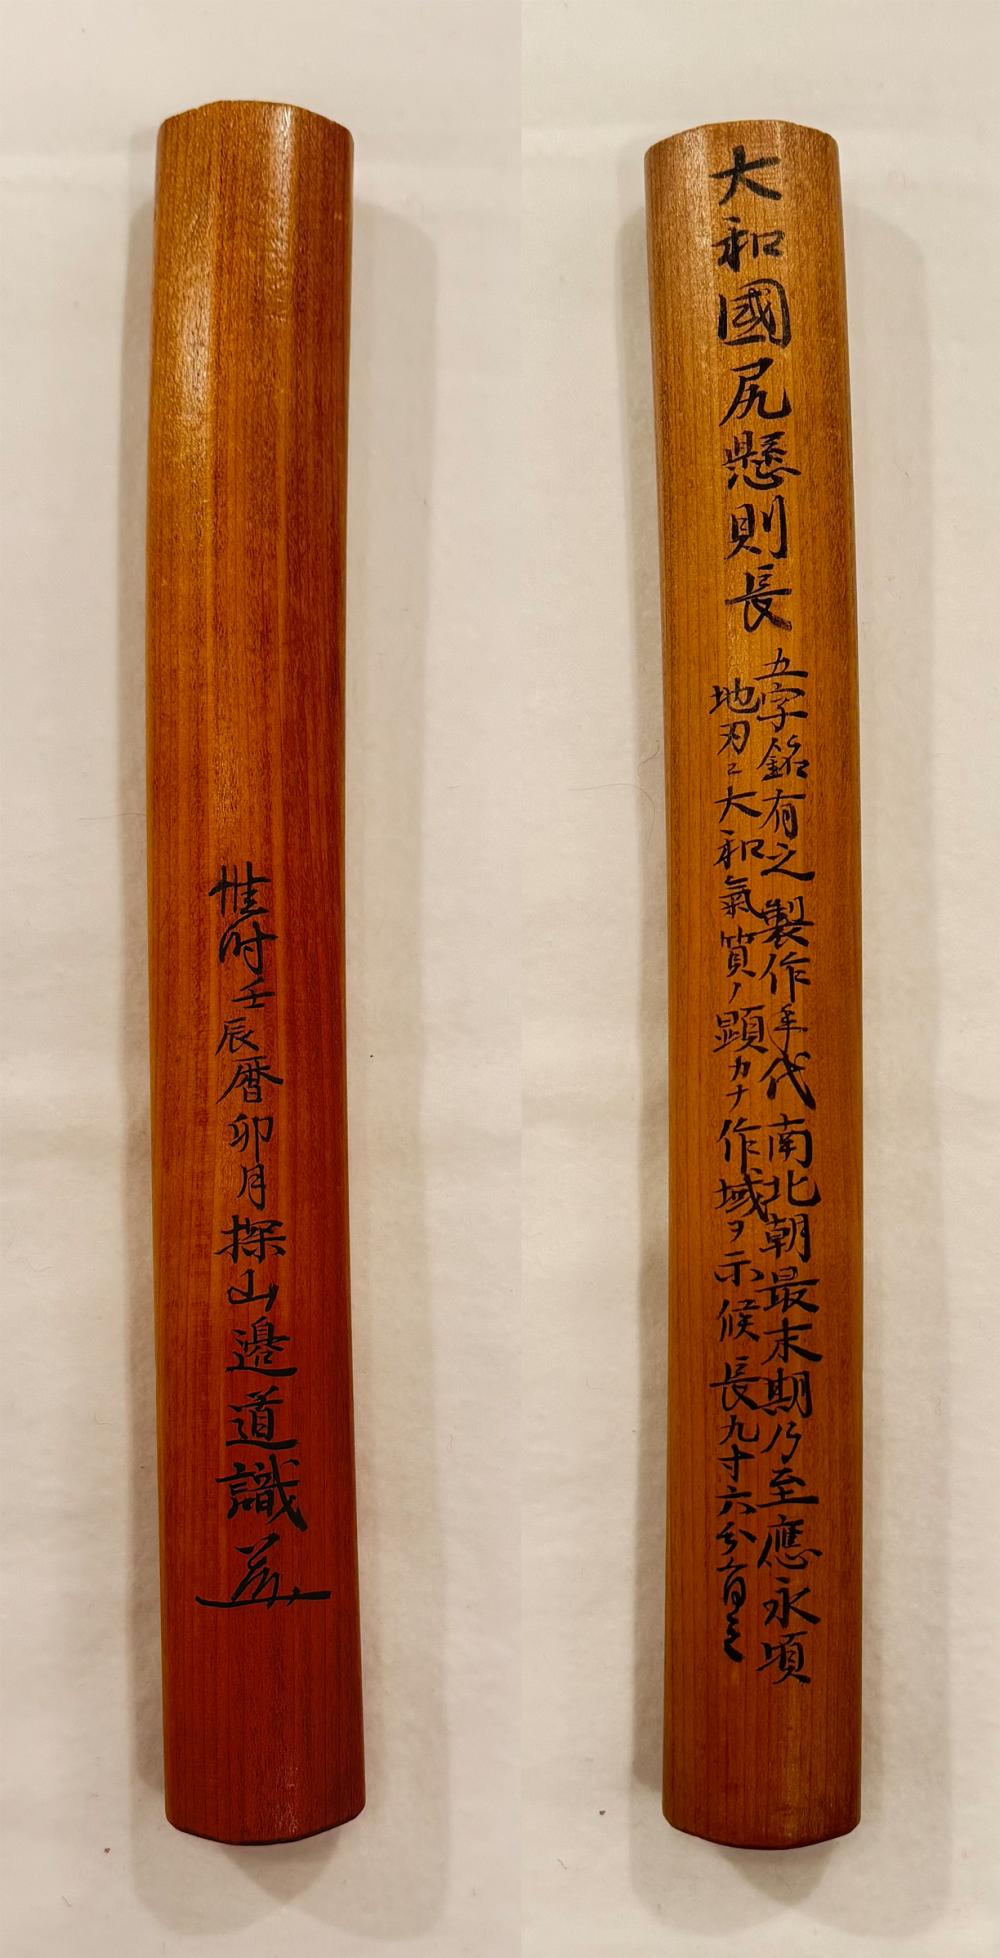 大和國尻懸則長
五字銘有之製作年代南北朝最末期乃至應永頃
地刃ニ大和氣質ノ顕カナ作域ヲ示候長九寸六分有之
惟時壬辰暦卯月探山邉道識